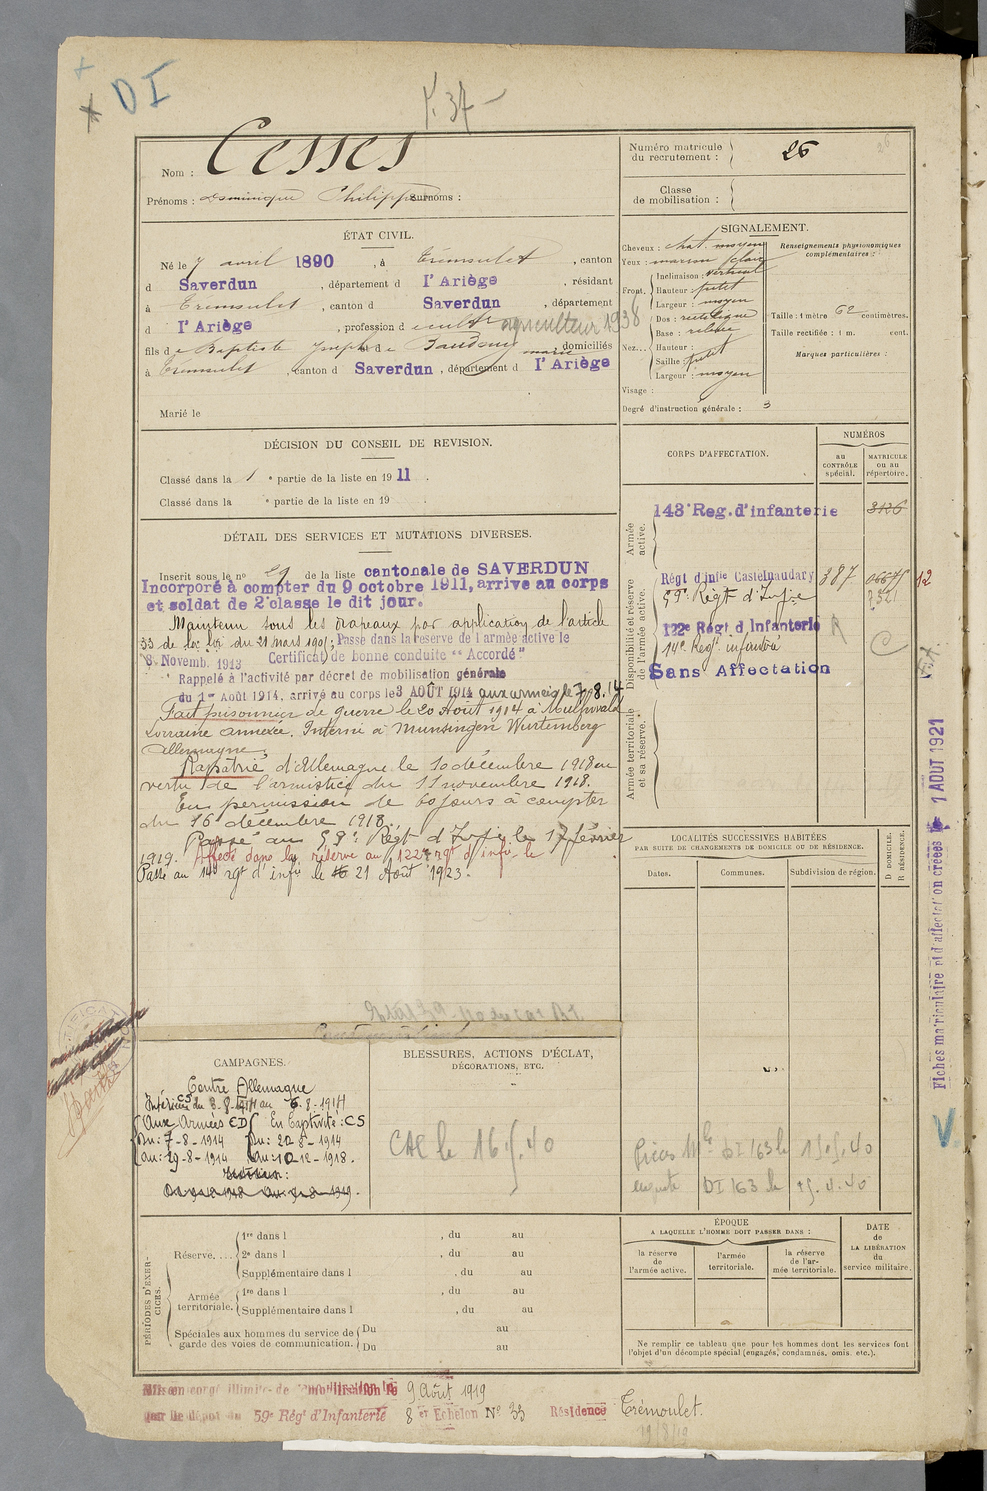 DI
P. 37
Nom : Cesses
Prénoms : Dominique Philippe Surnoms :
Numéro matricule du recrutement : 26
Classe de mobilisation :
ÉTAT CIVIL.
Né le 7 avril 1890, à Trémoulet, canton
d Saverdun, département d l'Ariège, résidant
à Trémoulet, canton d Saverdun, département
d l'Ariège, profession d cultr agriculteur 1938
fils de Baptiste Joseph et de marie domiciliés
à Trémoulet, canton d Saverdun, département d l'Ariège
Marié le
SIGNALEMENT.
Cheveux : chat. moyen
Yeux : marron clair
Front. Inclinaison : vertical
Hauteur : petit
Largeur : moyen
Nez... Dos : rectiligne
Base : relevée
Hauteur :
Saillie : petit
Largeur : moyen
Visage :
Degré d'instruction générale : 3
Renseignements physionomiques complémentaires :
Taille : 1 mètre 62 centimètres.
Taille rectifiée : 1 m. cent.
Marques particulières :
DÉCISION DU CONSEIL DE REVISION.
Classé dans la 1 e partie de la liste en 1911.
Classé dans la e partie de la liste en 19
DÉTAIL DES SERVICES ET MUTATIONS DIVERSES.
Inscrit sous le no 29 de la liste cantonale de SAVERDUN
Incorporé à compter du 9 octobre 1911, arrive au corps
et soldat de 2e classe le dit jour.
Maintenu sous les drapeaux par application de l'article
33 de la loi du 21 mars 1905; Passé dans la reserve de l'armée active le
8 Novemb. 1913 Certificat de bonne conduite "Accordé"
Rappelé à l'activité par décret de mobilisation générale
du 1er Août 1914, arrivé au corps le 3 AOÛT 1914 aux armées le 7.8.14
Fait prisonnier de guerre le 20 Août 1914 à
Lorraine annexée. Interné à Munsingen Wurtemberg
Allemagne.
Rapatrié d'Allemagne le 10 décembre 1918 en
vertu de l'armistice du 11 novembre 1918.
En permission de 60 jours à compter
du 16 décembre 1918.
Passé au 59e Régt d'Infie le 17 février
1919. Affecté dans la réserve au 122e rgt d'infie le
Passé au 14e rgt d'infie le 21 Août 1923.
CORPS D'AFFECTATION.
NUMÉROS
au contrôle spécial.
matricule ou au répertoire.
Armée active.
143e Reg. d'infanterie 3126
Disponibilité et réserve de l'armée active.
Régt d'infie Castelnaudary 387
59e Régt d'Infie
122e Régt d'Infanterie R
14e Regt infanterie C
Sans Affectation
Armée territoriale et sa réserve.
12
Fiches matriculaire et d'affectation créées le 1 AOUT 1921
V.
LOCALITÉS SUCCESSIVES HABITÉES
PAR SUITE DE CHANGEMENTS DE DOMICILE OU DE RÉSIDENCE.
Dates.
Communes.
Subdivision de région.
D DOMICILE.
R RÉSIDENCE.
CAMPAGNES.
Contre Allemagne
Intérieur CS du 3-8-1914 au 6-8-1914
Aux Armées CD En Captivité : CS
Du : 7-8-1914 Du : 20-8-1914
Au : 19-8-1914 Au : 10-12-1918.
BLESSURES, ACTIONS D'ÉCLAT,
DÉCORATIONS, ETC.
CAC le 16.5.40
Pièces Mle DI 163 le 15.5.40
DI 163 le 25.4.40
PÉRIODES D'EXERCICES.
Réserve.... 1re dans l, du au
2e dans l, du au
Supplémentaire dans l, du au
Armée territoriale. 1re dans l, du au
Supplémentaire dans l, du au
Spéciales aux hommes du service de garde des voies de communication. Du au
Du au
ÉPOQUE
A LAQUELLE L'HOMME DOIT PASSER DANS :
la réserve de l'armée active.
l'armée territoriale.
la réserve de l'armée territoriale.
DATE de LA LIBÉRATION du service militaire.
Ne remplir ce tableau que pour les hommes dont les services font
l'objet d'un décompte spécial (engagés, condamnés, omis, etc.).
Mis en congé illimité de démobilisation le 9 Août 1919
par le dépôt du 59e Régt d'Infanterie 8e Echelon No 33 Résidence Trémoulet.
19/8/19